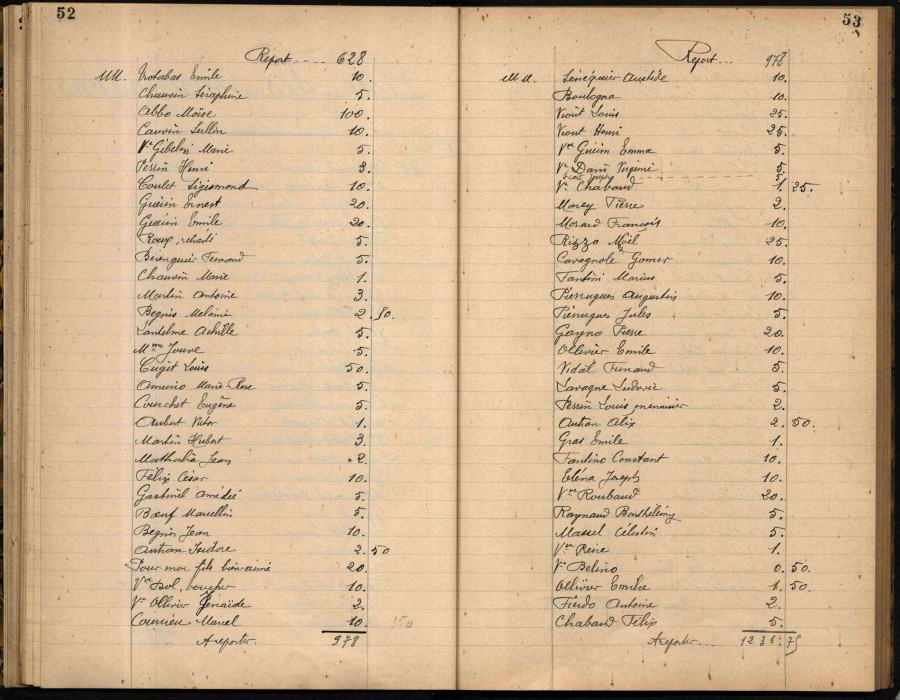 52
Report 628
MM. Emile 10.
Chauvin Séraphine 5.
Abbo Moïse 100.
Cauvin 10.
Ve Gibelin Marie 5.
Perrin Henri 3.
Coulet Sigismond 10.
Guérin Ernest 20.
Guérin Emile 20.
Roux, retraité 5.
Bérenguier Fernand 5.
Chauvin Marie 1.
Martin Antoine 3.
Begnis Mélanie 2.50.
Lantelme Achille 5.
Mme Jouve 5.
Cugit Louis 50.
Marie-Rose 5.
Courchet Eugène 5.
Aubert 1.
Martin Hubert 3.
Mathalia Jean 2.
Félix César 10.
Gastinel Amédée 5.
Bœuf Marcellin 5.
Begnis Jean 10.
Autran Isidore 2.50
Pour mon fils bien-aimé 20.
Vve Dol, boucher 10.
Ve Ollivier Zénaïde 2.
Marcel 10.
350
A reporter 978
53
Report 978
MM. Sénéquier Aristide 10.
Boulogne 10.
Viout Louis 25.
Viout Henri 25.
Vve Guérin Emma 5.
Ve Dani Virginie 5.
5.
Ve Chabaud 1.25.
Marcy Pierre 2.
Morard François 10.
Rizzo Noël 25.
Cavagnole Gomer 10.
Fantini Marius 5.
Pierrugues Augustin 10.
Pierrugues Jules 5.
Gayno Pierre 20.
Ollivier Emile 10.
Vidal Fernand 5.
Lavagne Ludovic 5.
Perrin Louis menuisier 2.
Autran Alix 2.50.
Gras Emile 1.
Fantino Constant 10.
Eléna Joseph 10.
Vve Roubaud 20.
Raynaud Barthélémy 5.
Massel Célestin 5.
Vve Reine 1.
Ve Belino 0.50.
Ollivier 1.50.
Antoine 2.
Chabaud Félix 5.
A reporter 1236.75